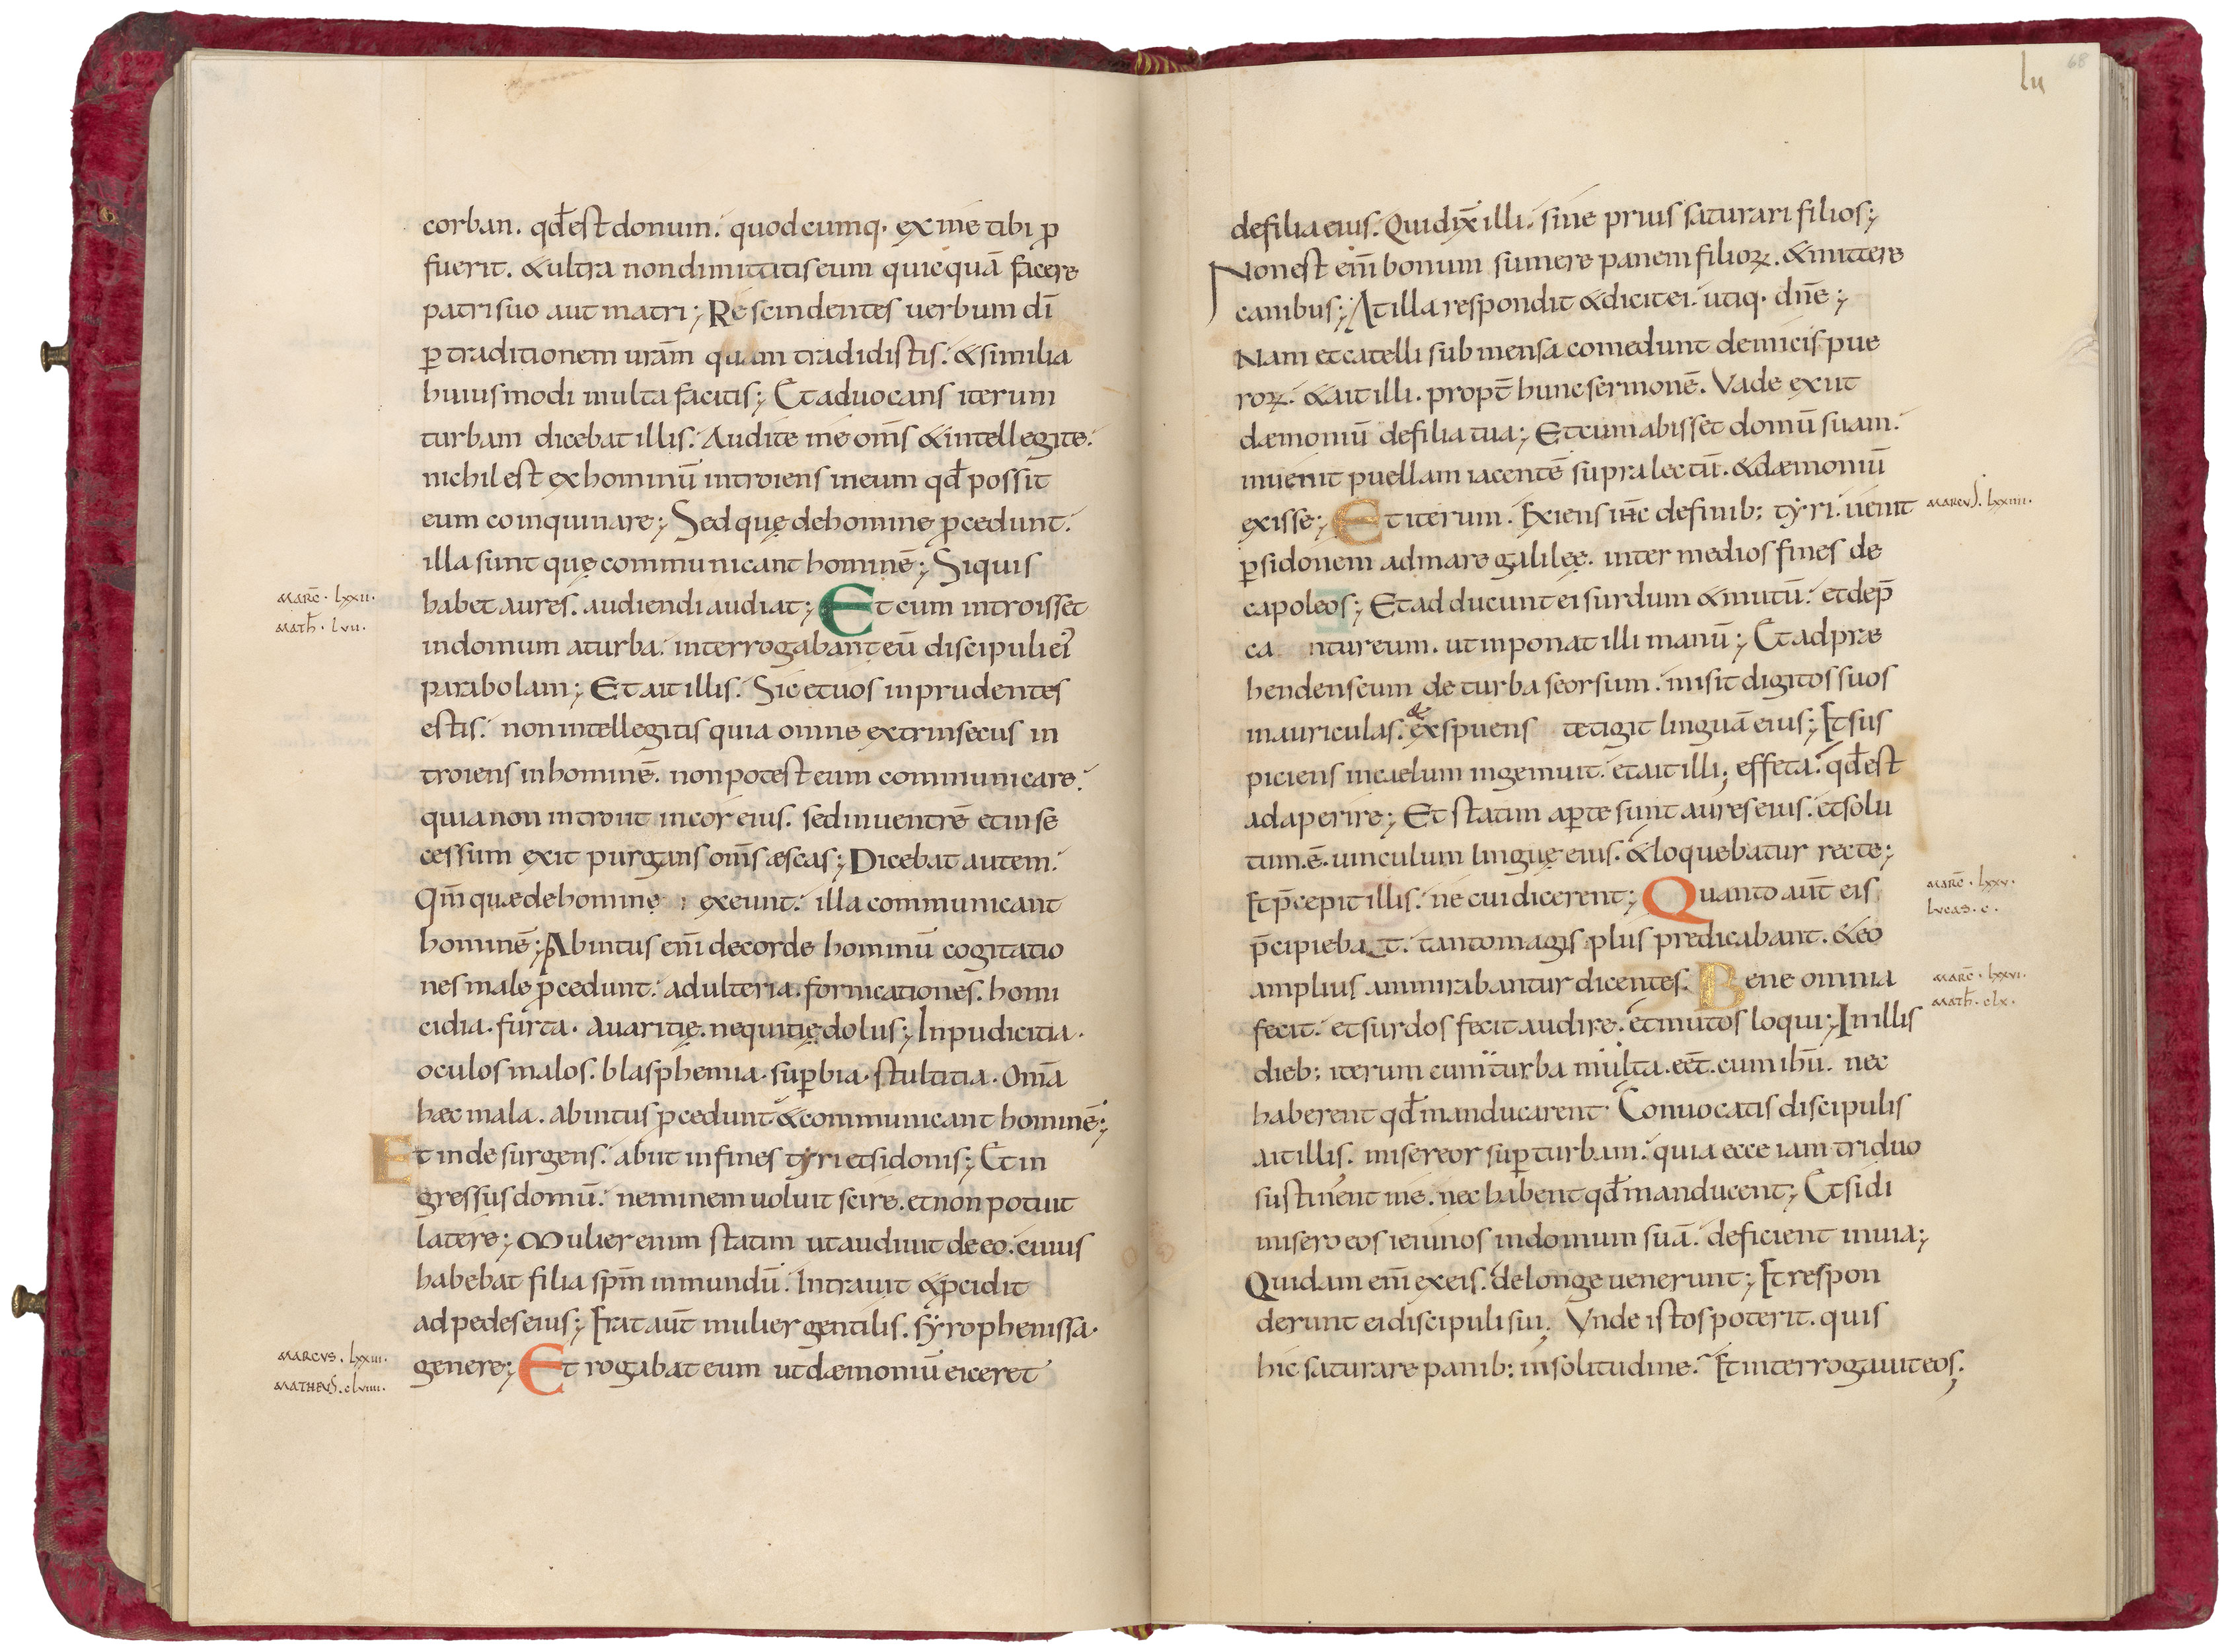 corban. qđ est donum. quodcumq. ex me tibi ꝓ
fuerit. & ultra non dimittitis eum quicquā facere
patri suo aut matri; Rescindentes uerbum dī
ꝑ traditionem urām quam tradidistis. & similia
huiusmodi multa facitis; Et aduocans iterum
turbam dicebat illis. Audite me om̄s & intellegite.
nichil est ex hominū introiens in eum qđ possit
eum coinquinare; Sed quę de homine ꝓcedunt.
illa sunt quę communicant hominē; Siquis
marc̄. lxxii.
math̄. lvii.
habet aures. audiendi audiat; Et cum introisset
in domum a turba. interrogabant eū discipuli eı᷒
parabolam; Et ait illis. Sic et uos inprudentes
estis. non intellegitis quia omne extrinsecus in
troiens in hominē. non potest eum communicare.
quia non introit in cor eius. sed in uentrē et in se
cessum exit purgans om̄s æscas; Dicebat autem.
Qm̄ quæ de homine exeunt. illa communicant
hominē; Ab intus eni̅ de corde hominū cogitatio
nes male ꝓcedunt. adulteria. fornicationes. homi
cidia. furta. auaritię. nequitię dolus; Inpudicitia.
oculos malos. blasphemia. suꝑbia. stultitia. Om̄a
hæc mala. ab intus ꝓcedunt & communicant hominē;
Et inde surgens. abiit in fines tyri et sidonis; Et in
gressus domū. neminem uoluit scire. et non potuit
latere; Mulier enim statim ut audiuit de eo. cuius
habebat filia spm̄ inmundū. Intrauit & ꝓcidit
ad pedes eius; Erat aūt mulier gentilis. syrophenissa.
marcvs. lxxiii.
mathevs. clviiii.
genere; Et rogabat eum ut dæmoniū eiceret
lu
68
de filia eius. Qui dix̄ illi. sine prius saturari filios;
Non est eni̅ bonum sumere panem filioꝝ. & mittere
canibus; At illa respondit & dicit ei. utiq. dn̄e;
Nam et catelli sub mensa comedunt de micis pue
roꝝ. & ait illi. propt̄ hunc sermonē. Vade exiit
dæmoniū de filia tua; Et cum abisset domū suam.
inuenit puellam iacentē supra lectū. & dæmoniū
exisse; Et iterum. Exiens iħc de finib; tyri. uenit
marcvs. lxxiiii.
ꝑ sidonem ad mare galilęe. inter medios fines de
capoleos; Et adducunt ei surdum & mutū. et dep̄
ca ntur eum. ut inponat illi manū; Et adpræ
hendens eum de turba seorsum. misit digitos suos
in auriculas. & exspuens tetigit linguā eius; Et sus
piciens in caelum ingemuit. et ait illi; effeta. qđ est
adaperire; Et statim aꝑte sunt aures eius. et solu
tum. ē. uinculum linguę eius. & loquebatur recte;
marc̄. lxxv.
lvcas. c.
Et p̄cepit illis. ne cui dicerent; Quanto aūt eis
p̄cipieba t. tanto magis plus predicabant. & eo
marc̄. lxxvi.
math̄. clx.
amplius ammirabantur dicentes. Bene omnia
fecit. et surdos fecit audire. et mutos loqui; In illis
dieb; iterum cum turba multa. ee̅t. cum ihū. nec
haberent qđ manducarent. Conuocatis discipulis
ait illis. misereor suꝑ turbam. quia ecce iam triduo
sustinent me. nec habent qđ manducent; Et si di
misero eos ieiunos in domum suā. deficient in uia;
Quidam eni̅ ex eis. de longe uenerunt; Et respon
derunt ei discipuli sui. Vnde istos poterit. quis
hic saturare panib; in solitudine. Et interrogauit eos.